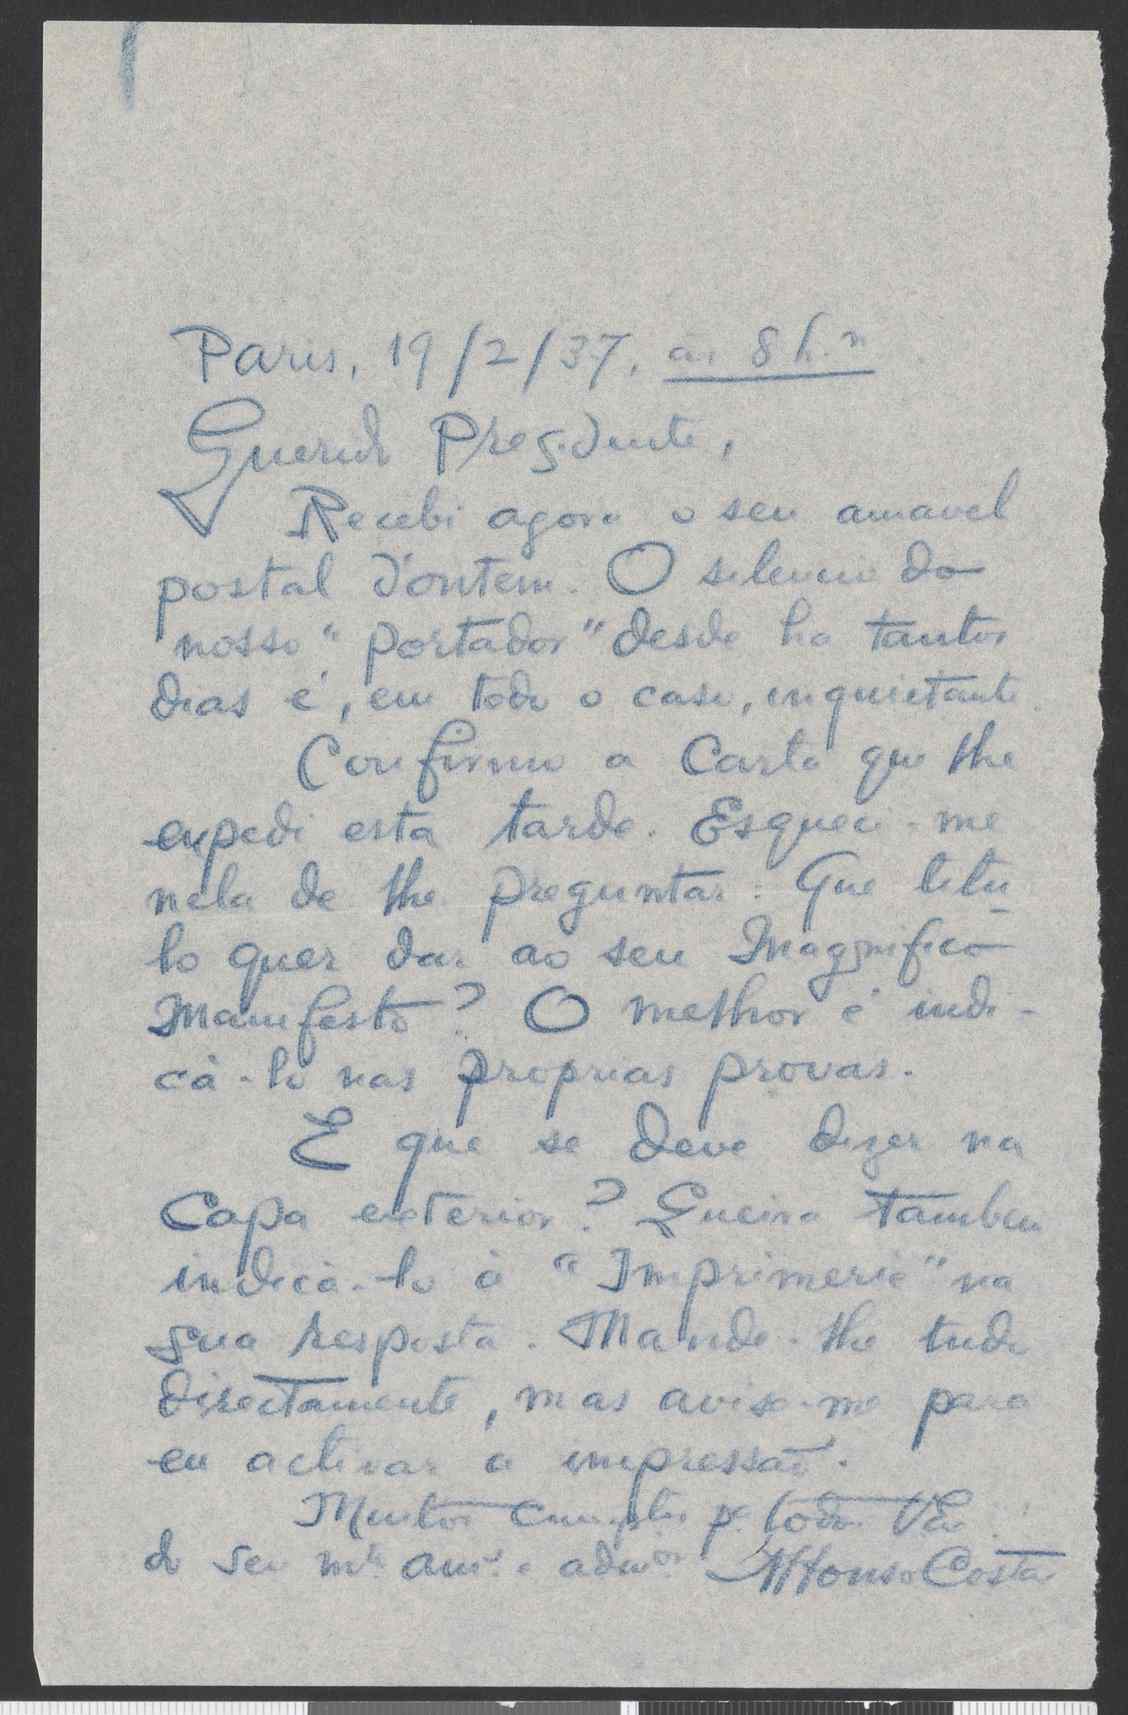 Paris, 19/2/37, às 8 h. n
Querido Presidente,
Recebi agora o seu amavel
postal d'ontem. O silencio do
nosso "portador" desde ha tantos
dias é, em todo o caso, inquietante.
Confirmo a Carta que lhe
expedi esta tarde. Esqueci-me
nela de lhe preguntar: Que titu-
lo quer dar ao seu Magnifico
Manifesto? O melhor é indi-
cá-lo nas proprias provas.
E que se deve dizer na
Capa exterior? Queira tambem
indicá-lo á "Imprimerie" na
sua resposta. Mande-lhe tudo
directamente, mas avise-me para
eu activar a impressão.
Muitos cumptos pa. todos VEx
do seu mto. amo. e admor. Affonso Costa